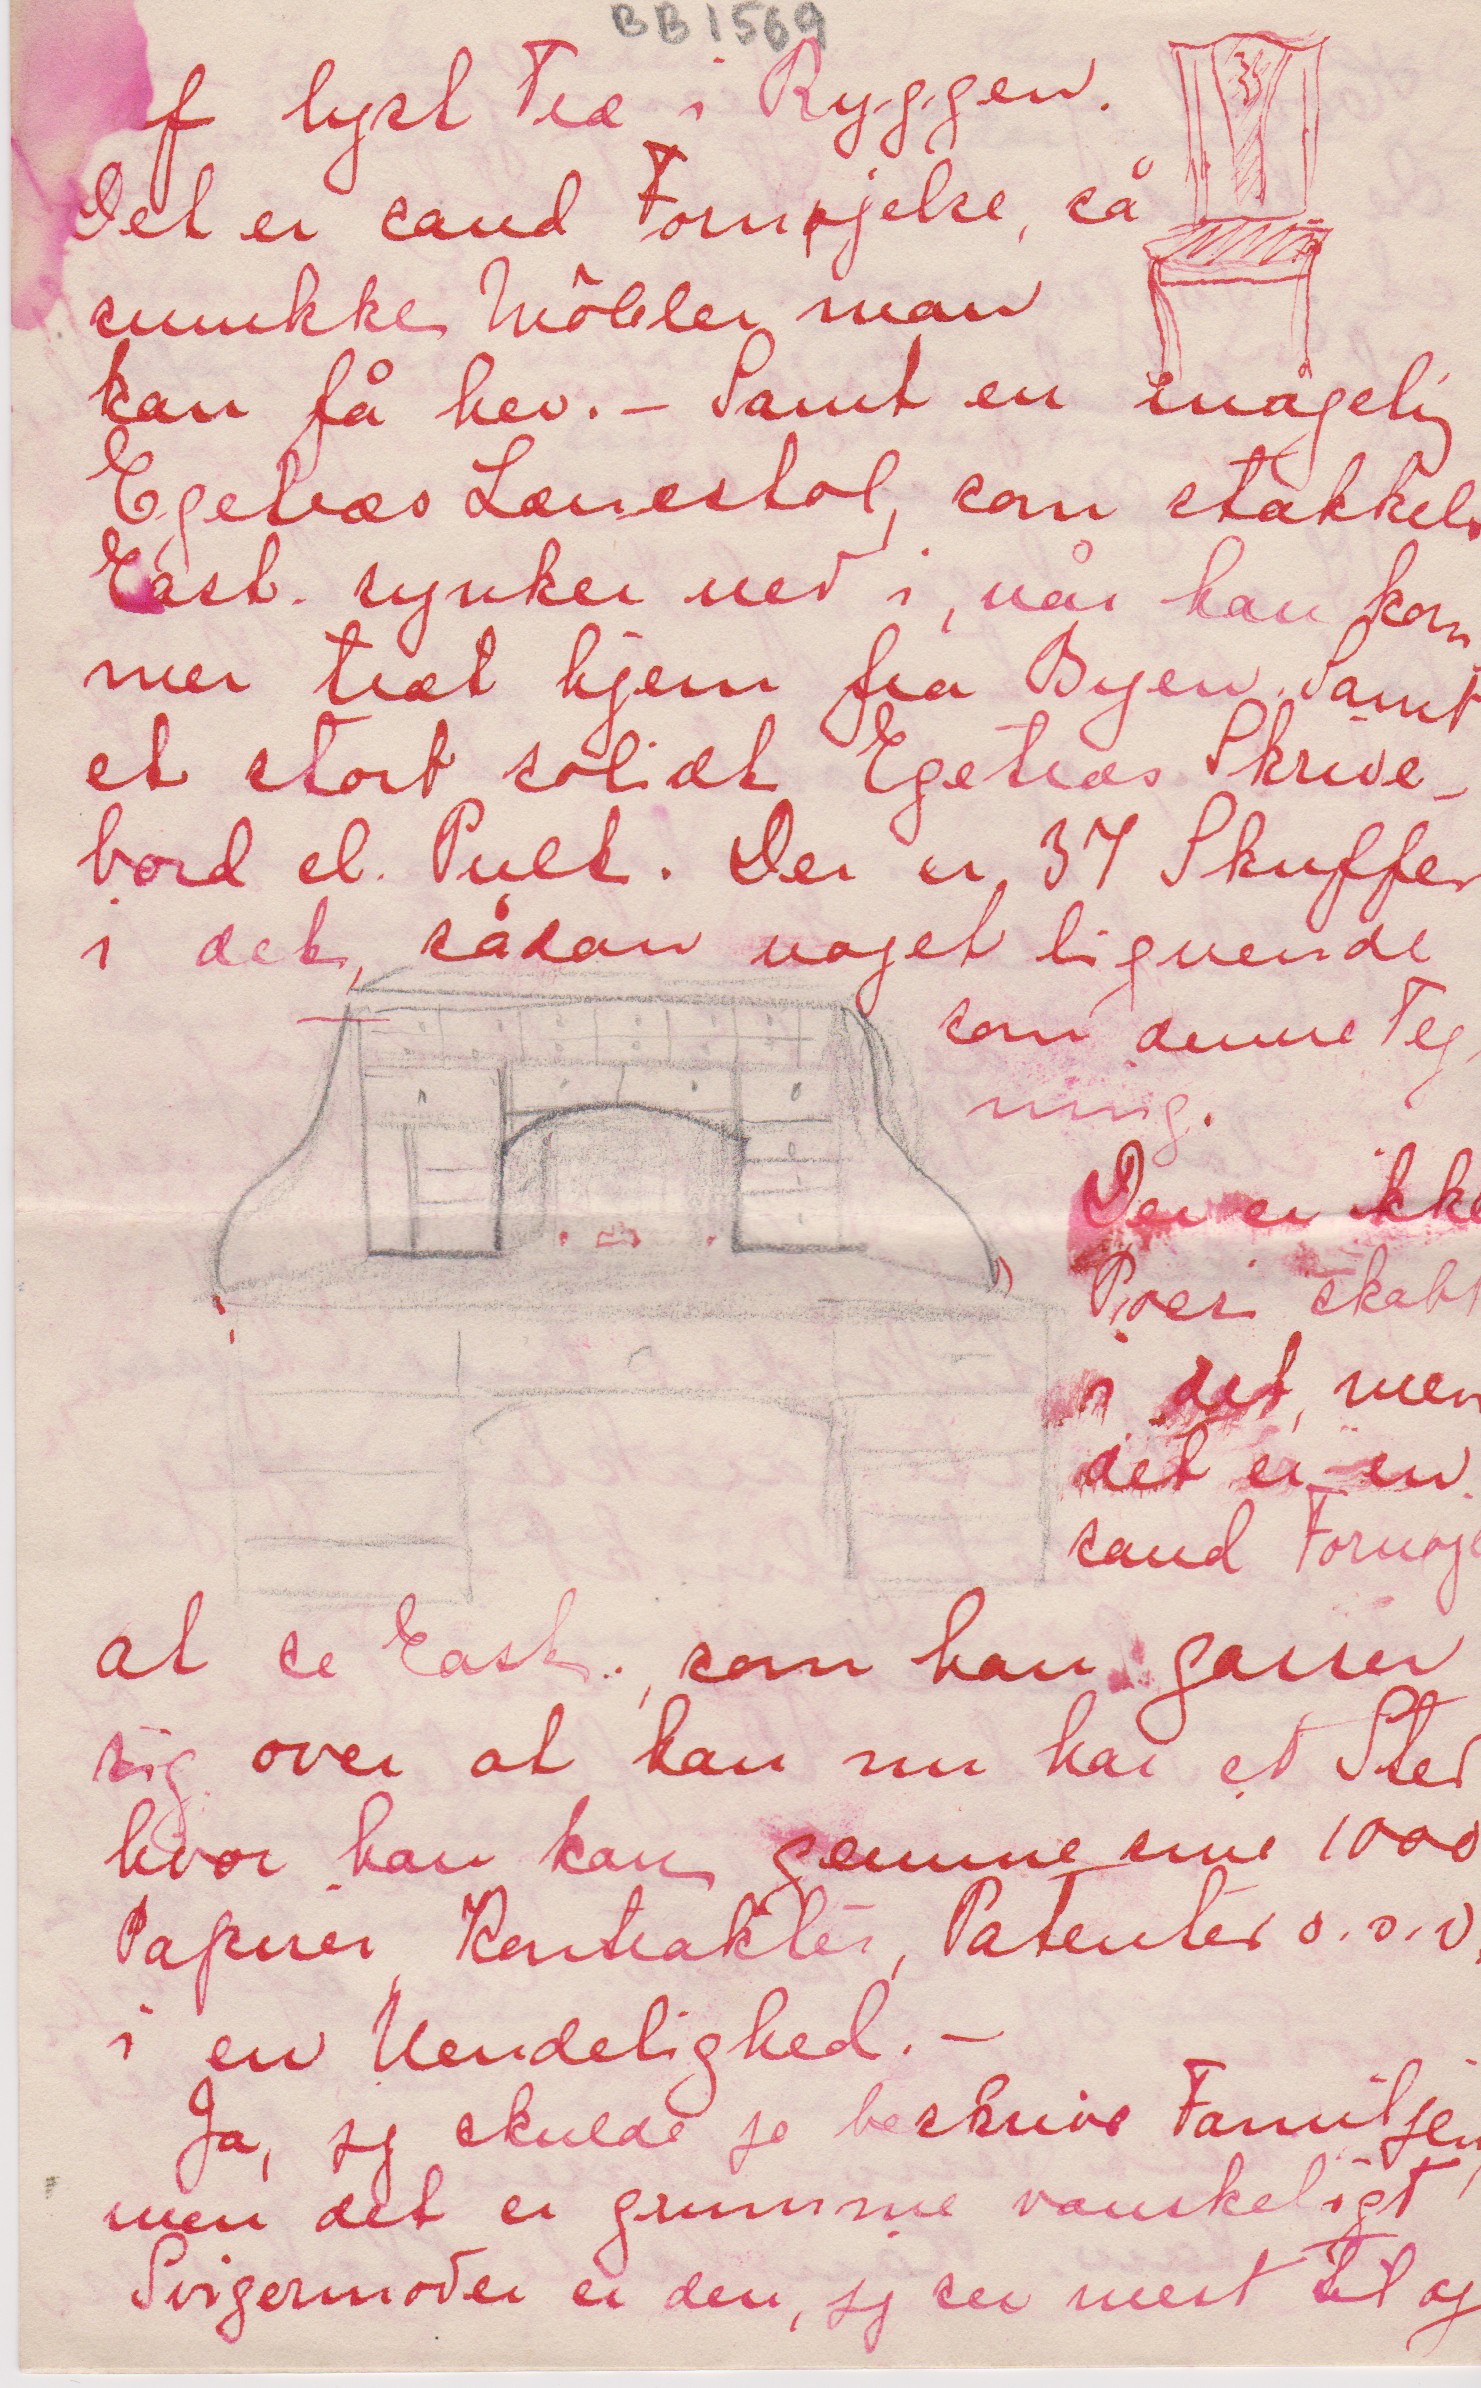 BB1569
f lyst Træ i Ryggen.
Det er sand Fornøjelse, så
smukke Möbler man
kan få her. – Samt en magelig
Egetræs Lænestol, som stakkels
East. synker ned i, når han kom
mer træt hjem fra Byen. Samt
et stort solidt Egetræs Skrive-
bord el. Pult. Der er 37 Skuffer
i det, sådan noget lignende
som denne Teg
ning.
Der er ikke
skabt
i det, men
det er en
sand Fornøje
at se East., som han gasser
sig over at han nu har et Sted
hvor han kan gemme sine 1000
Papirer, Kontrakter, Patenter o.s.v.
i en Uendelighed. –
Ja, jg skulde jo beskrive Familjen,
men det er grumme vanskeligt
Svigermoder er den, jg ser mest til og